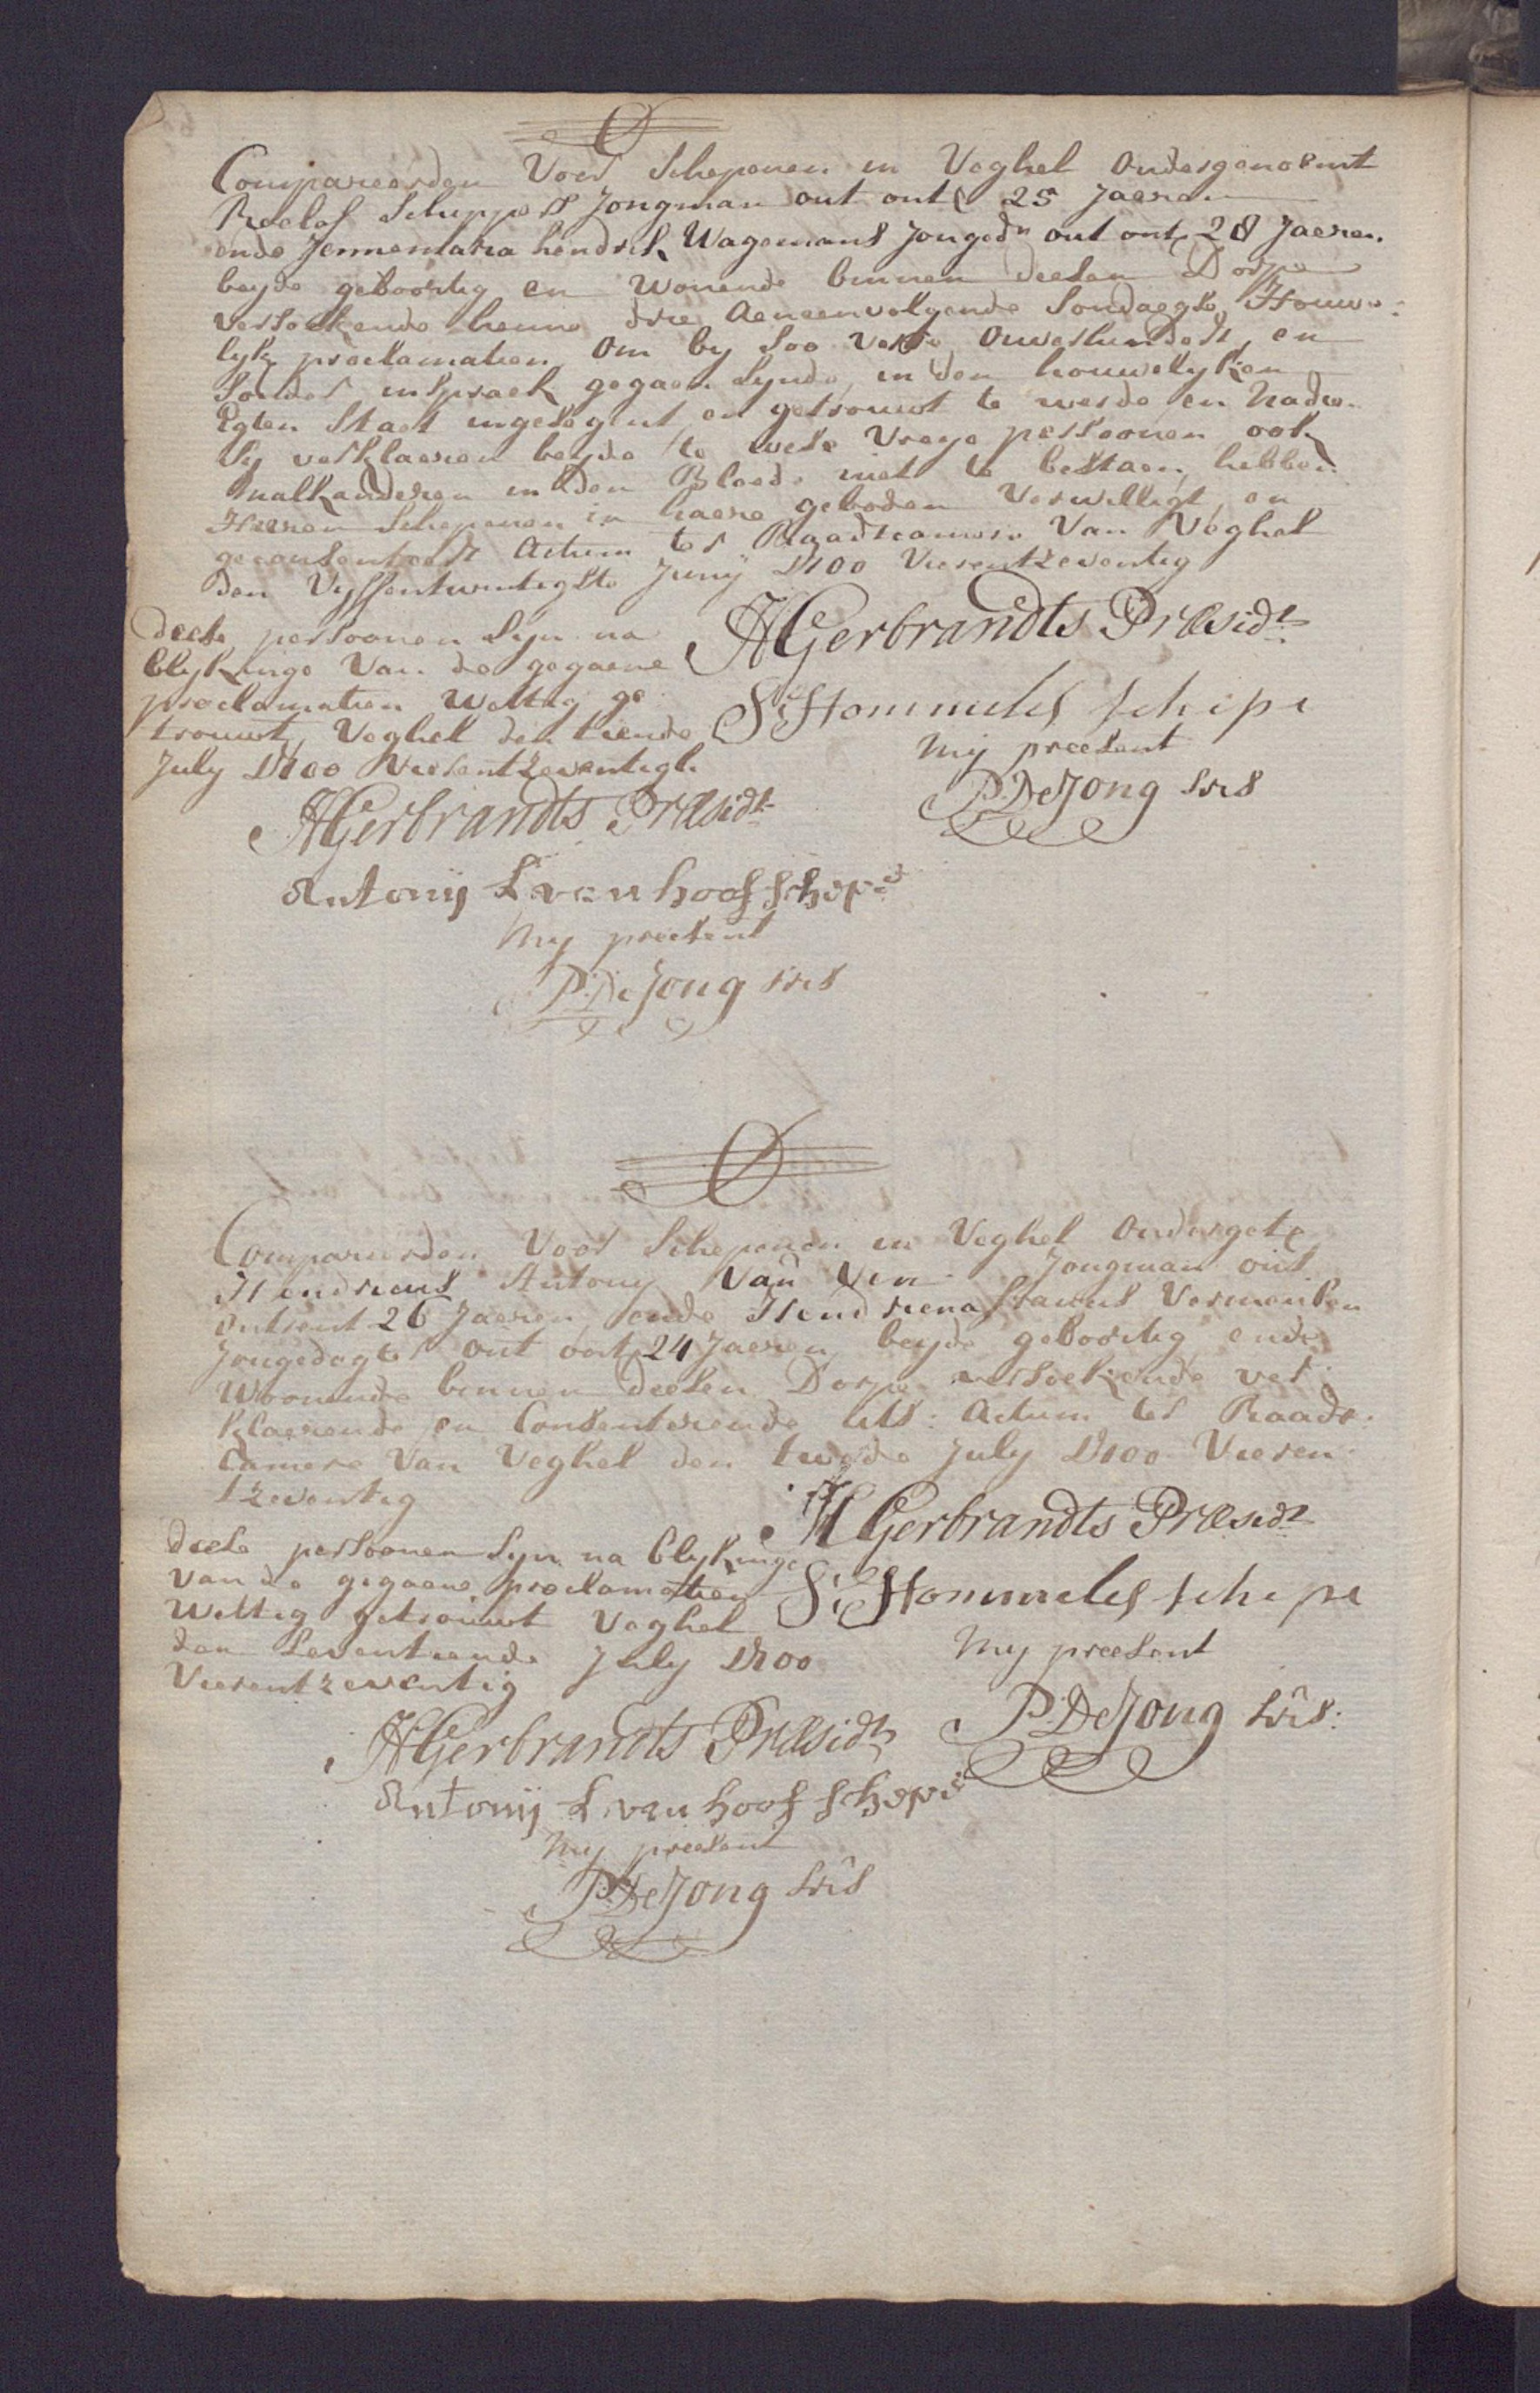 Compareerden Voor Schepenen in Veghel Ondergenoemt
Roelof Schippers Jongman out ontr 25 Jaeren
ende Jennemaria hendrik Wagemans Jongedr out ontr 28 Jaeren.
beyde geboortig en Wonende binnen deesen Dorpe
versoekende henne drie Aeneenvolgende Sondaegse Houwe-
lyk proclamatien Om by soo verre Onverhindert en
sonder inspraek gegaen synde, in den houwelyken
Egten Staet ingesegent en getrouwt te werde en Nade-
Sy verklaeren beyde te wese Vreye persoonen ook
malkanderen in den Bloede niet te bestaen, hebben
Heeren Schepenen in haere geboden Verwilligt en
geconsenteert Actum ter Raadtcamere Van Veghel
den Vyffentwintigste Juny 1700 Vierentzeventig
deese persoonen Syn na
blykinge Van de gegaene
proclamatien Wettig ge
trouwt, Veghel den tiende
July 1700 Vierentzeventigh
AGerbrandts Præsidt
S: Hommeles schepe
My preesent
P: DeJong Scrs
AGerbrandts Præsidt
Antonij L van hoof schepe
My preesent
P: DeJong Scrs
Compareerden Voor Schepenen in Veghel Ondergete
Hendricus Antony Van Ven Jongman out
Ontrent 26 Jaeren, ende Hendriena
Jongedogter out ontr 24 Jaeren, beyde geboortig ende
Woonende binnen deesen Dorpe versoekende ver-
klaerende en Consenterende uts: Actum ter Raads-
Camere Van Veghel den twede July 1700 Vieren
tzeventig
deese persoonen Syn na blykinge
van de gegaene proclamatien
Wettig getrouwt Veghel
den Seventiende July 1700
Vierentzeventig
AGerbrandts Præsidt
S: Hommeles schepe
My preesent
P: DeJong Scrs:
AGerbrandts Præsidt
Antonij L van hoof schepe
My preesent
P: DeJong Scrs